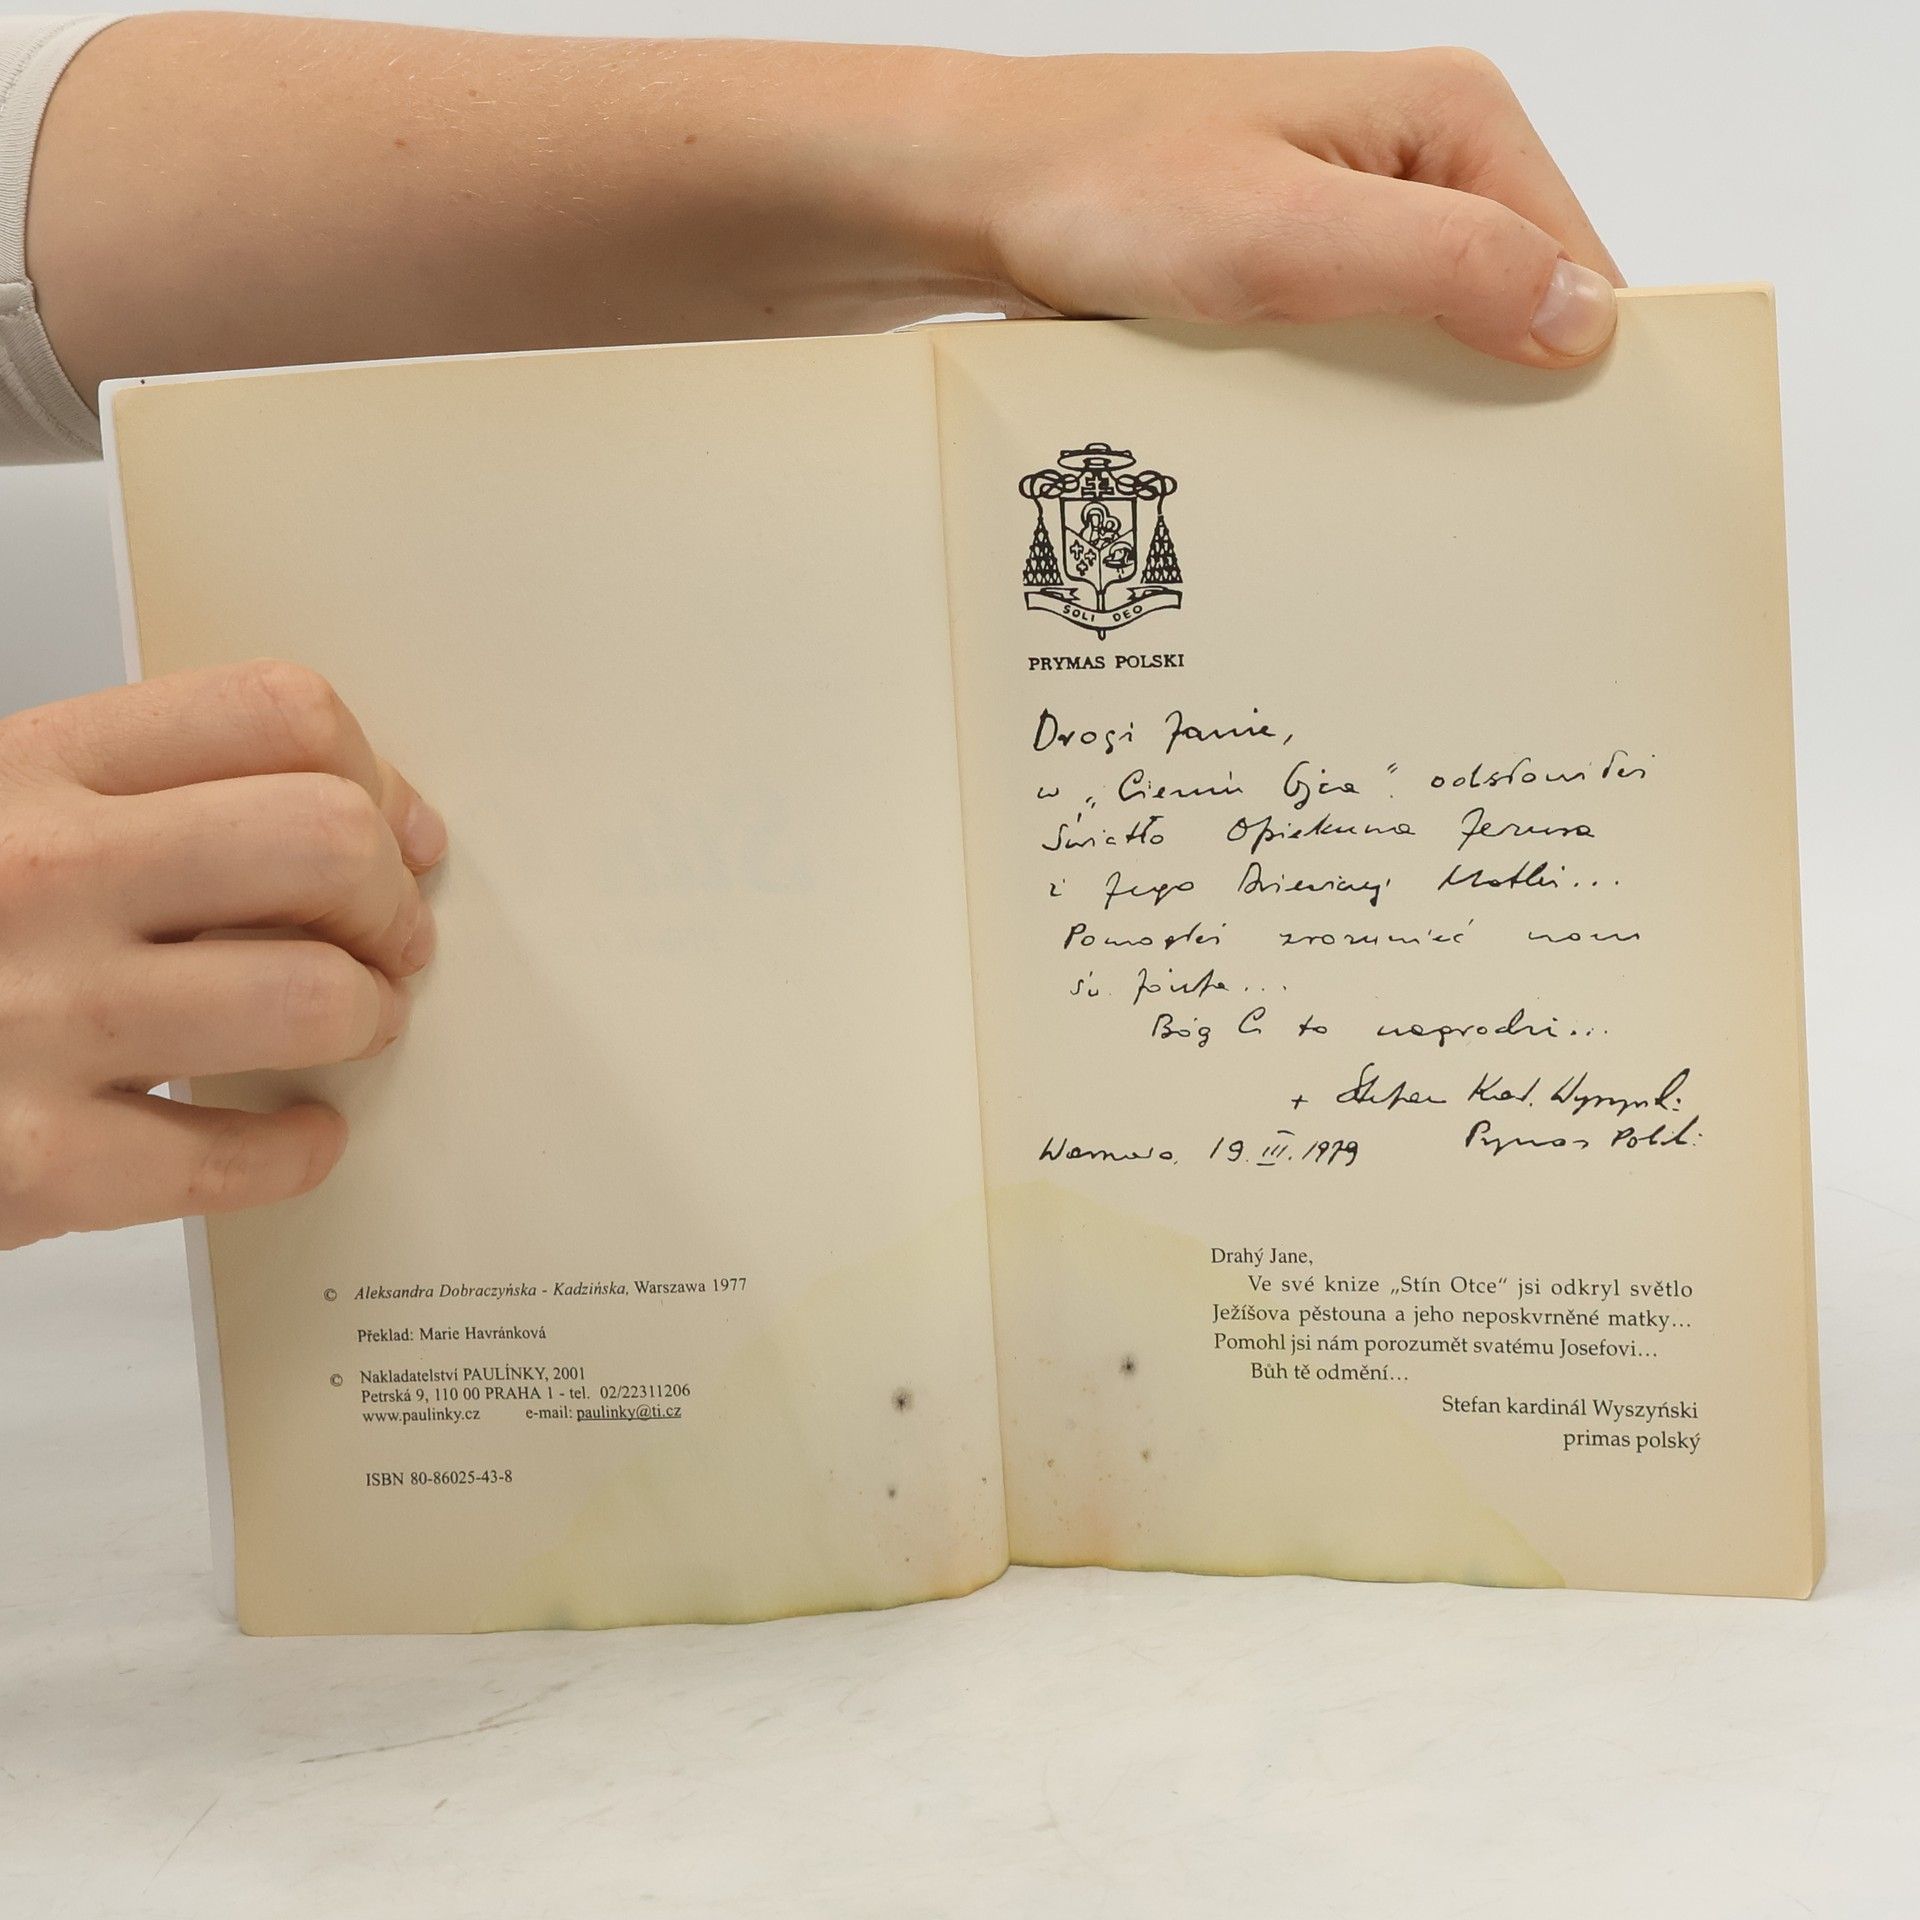 © Aleksandra Dobraczyńska - Kadzińska, Warszawa 1977
Překlad: Marie Havránková
© Nakladatelství PAULÍNKY, 2001
Petrská 9, 110 00 PRAHA 1 - tel. 02/22311206
www.paulinky.cz e-mail: paulinky@ti.cz
ISBN 80-86025-43-8
SOLI DEO
PRYMAS POLSKI
Drogi Janie,
w „Cieniu Ojca" odsłoniłeś
Światło Opiekuna Jezusa
i Jego Dziewiczej Matki...
Pomogłeś zrozumieć nam
św. Józefa...
Bóg Ci to nagrodzi...
+ Stefan Kard. Wyszyński
Prymas Polski
Warszawa, 19.III.1979
Drahý Jane,
Ve své knize „Stín Otce“ jsi odkryl světlo
Ježíšova pěstouna a jeho neposkvrněné matky…
Pomohl jsi nám porozumět svatému Josefovi…
Bůh tě odmění…
Stefan kardinál Wyszyński
primas polský